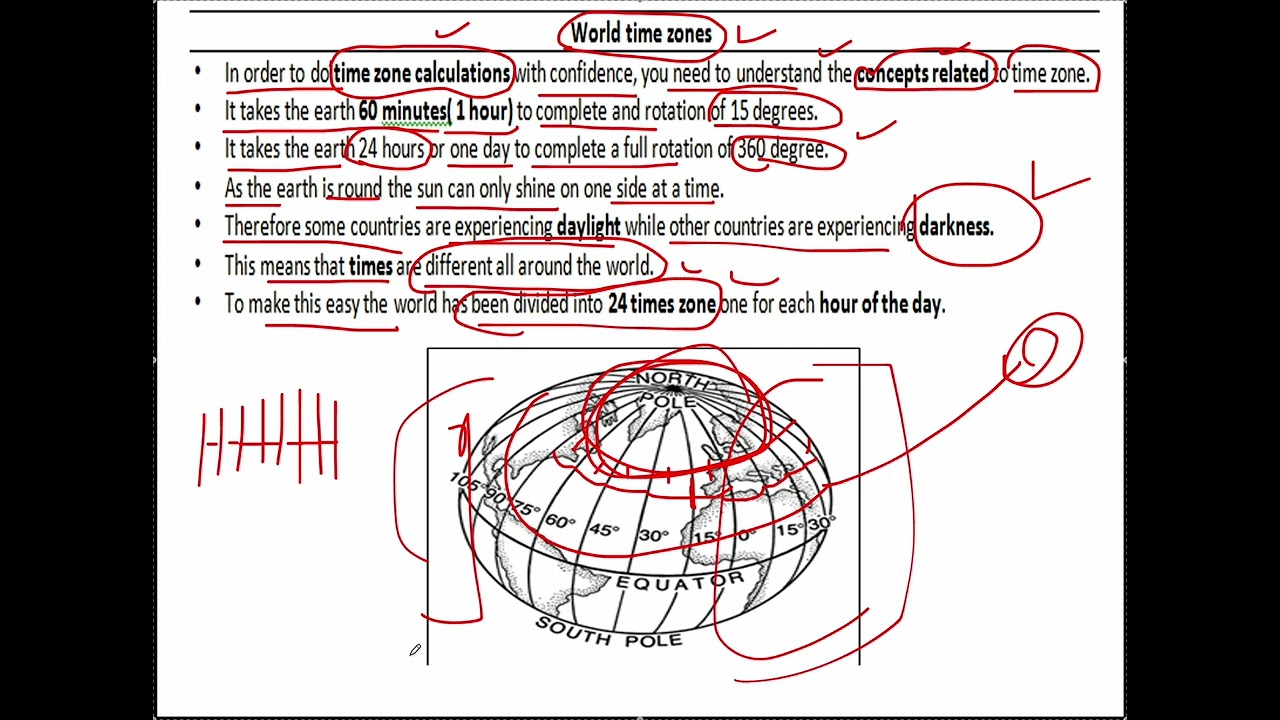 World time zones
• In order to do time zone calculations with confidence, you need to understand the concepts related to time zone.
• It takes the earth 60 minutes( 1 hour) to complete and rotation of 15 degrees.
• It takes the earth 24 hours or one day to complete a full rotation of 360 degree.
• As the earth is round the sun can only shine on one side at a time.
• Therefore some countries are experiencing daylight while other countries are experiencing darkness.
• This means that times are different all around the world.
• To make this easy the world has been divided into 24 times zone one for each hour of the day.
NORTH
POLE
105° 90° 75° 60° 45° 30° 15° 0° 15° 30°
EQUATOR
SOUTH POLE